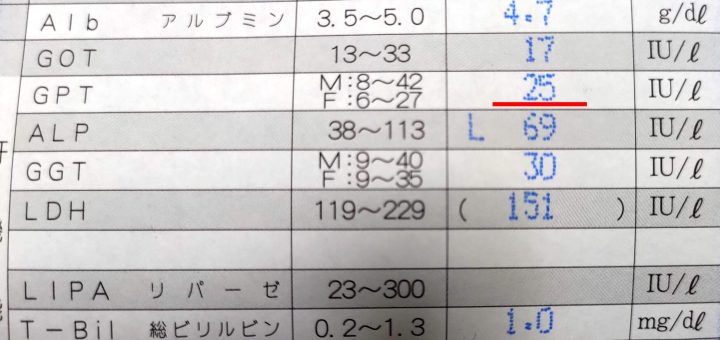 Alb アルブミン 3.5～5.0 4.7 g/dℓ
GOT 13～33 17 IU/ℓ
GPT M:8～42 F:6～27 25 IU/ℓ
ALP 38～113 L 69 IU/ℓ
GGT M:9～40 F:9～35 30 IU/ℓ
LDH 119～229 ( 151 ) IU/ℓ
LIPA リパーゼ 23～300 IU/ℓ
T－Bil 総ビリルビン 0.2～1.3 1.0 mg/dℓ